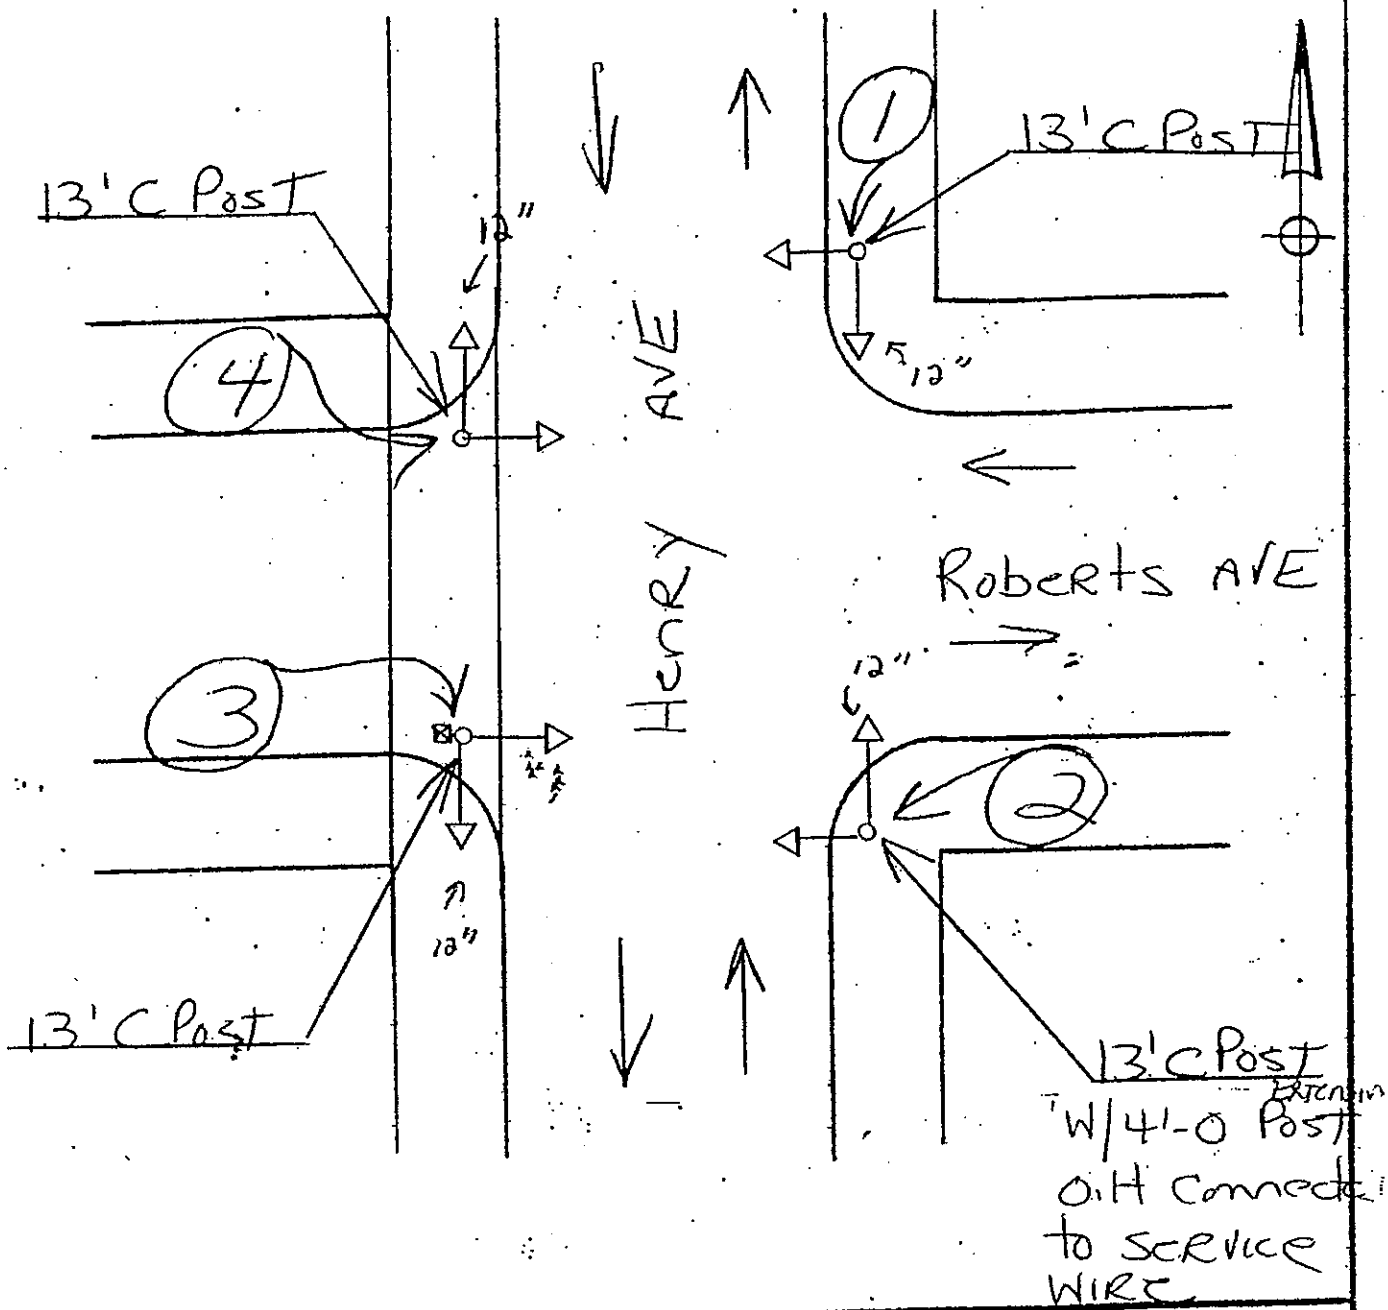 1
13'C Post
13'C Post
12"
4
12"
Henry AVE
Roberts AVE
3
12"
2
12"
13'C Post
13'C Post
Extension
W/4'-0 Post
O.H Connect
to service
wire